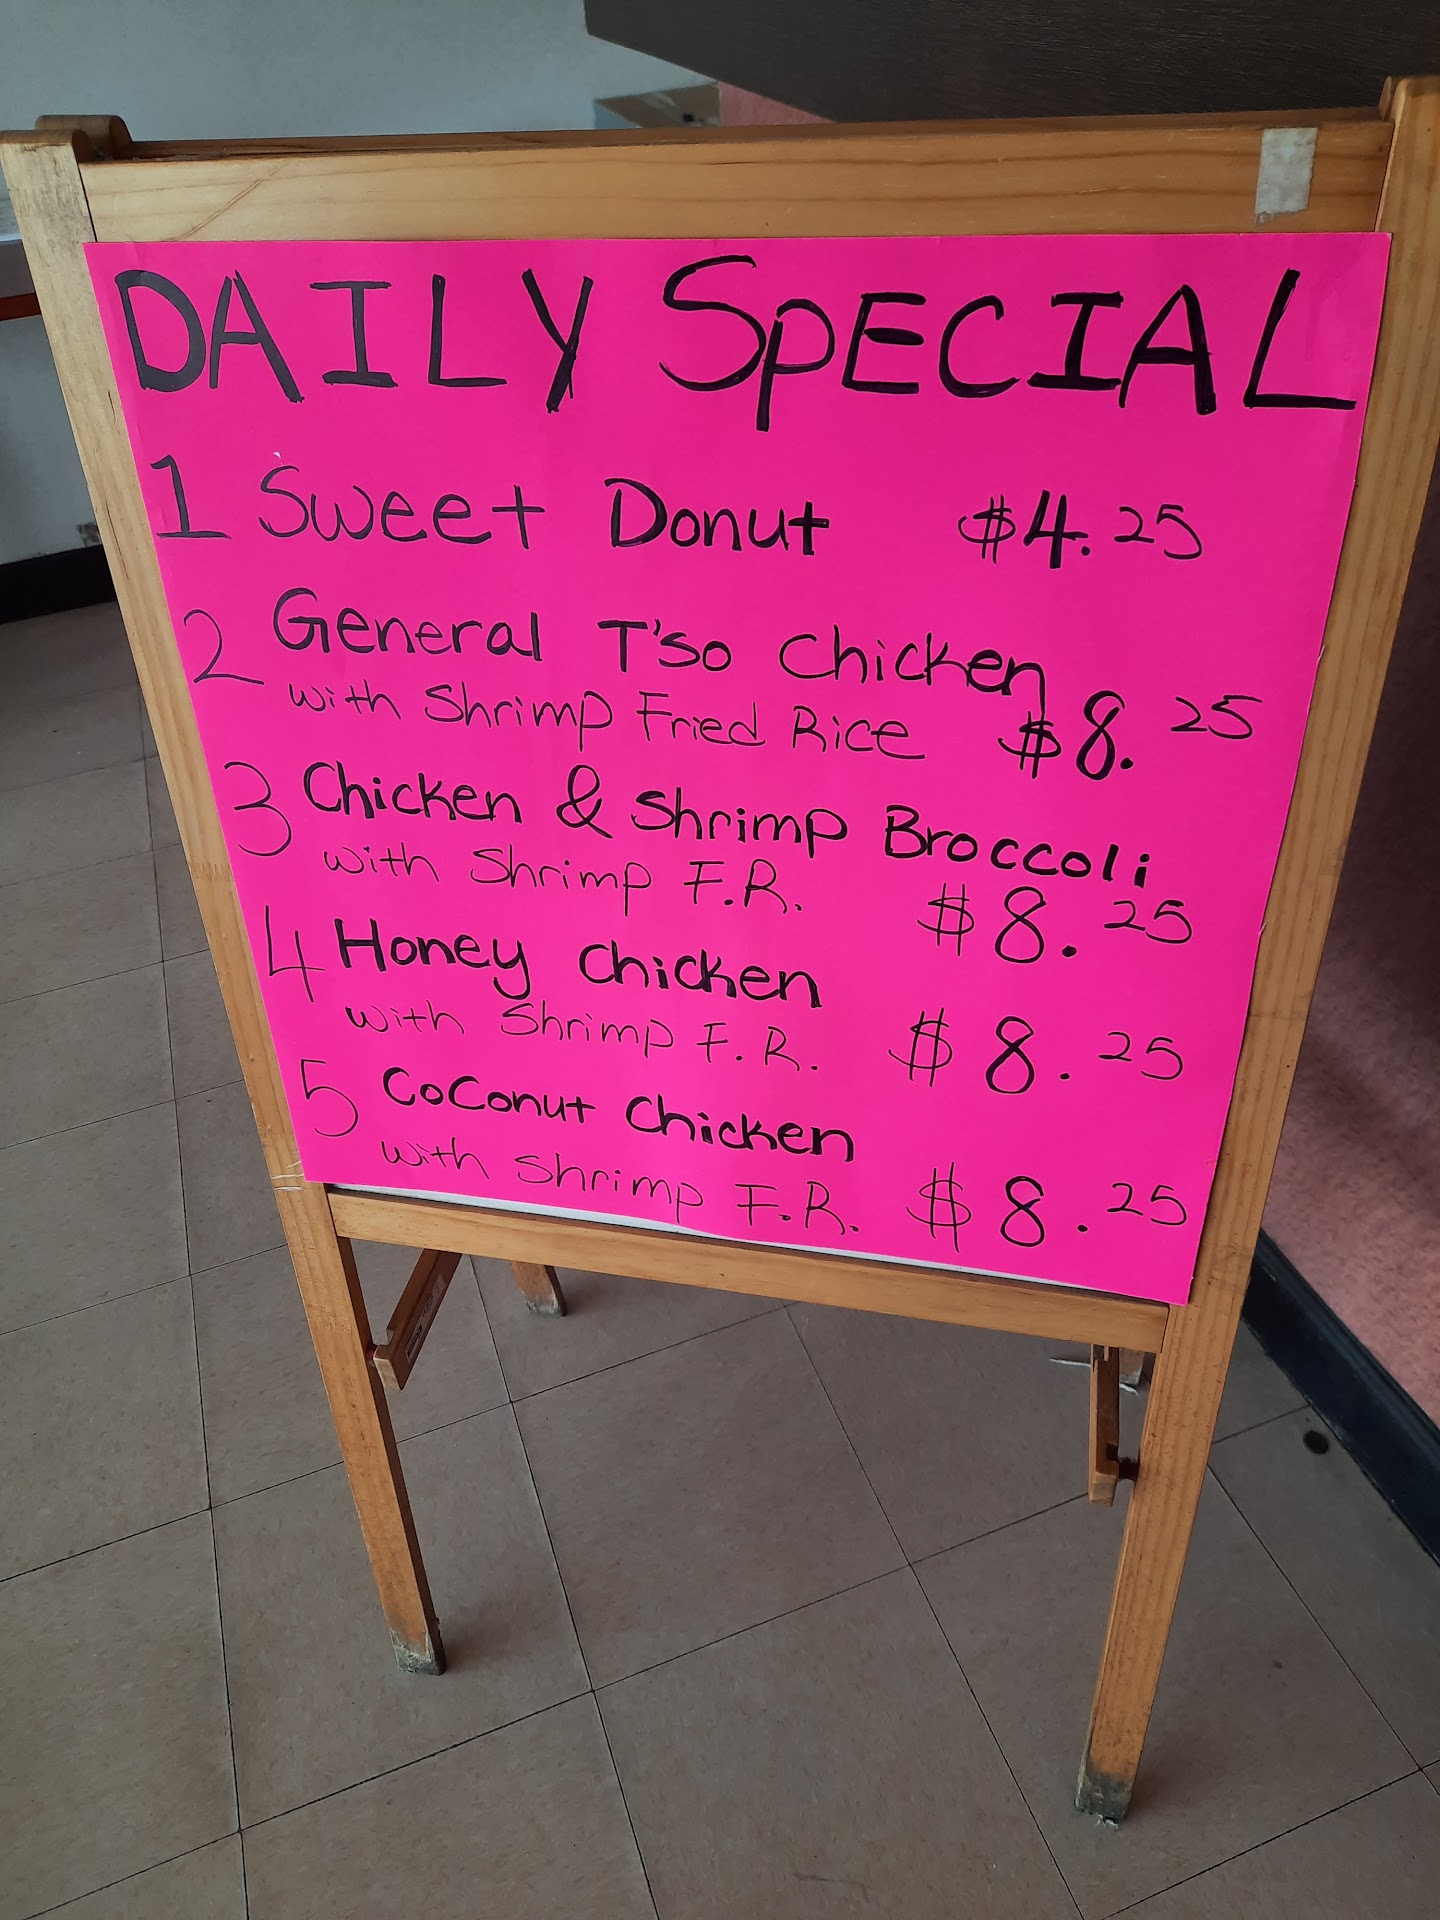 DAILY SPECIAL
1 Sweet Donut $4.25
2 General T'so Chicken
with Shrimp Fried Rice $8.25
3 Chicken & Shrimp Broccoli
with Shrimp F.R. $8.25
4 Honey Chicken
with Shrimp F.R. $8.25
5 Coconut Chicken
with Shrimp F.R. $8.25